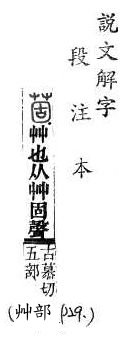 說文解字
段注本
艸也从艸固聲
古慕切
五部
(艸部 p29.)